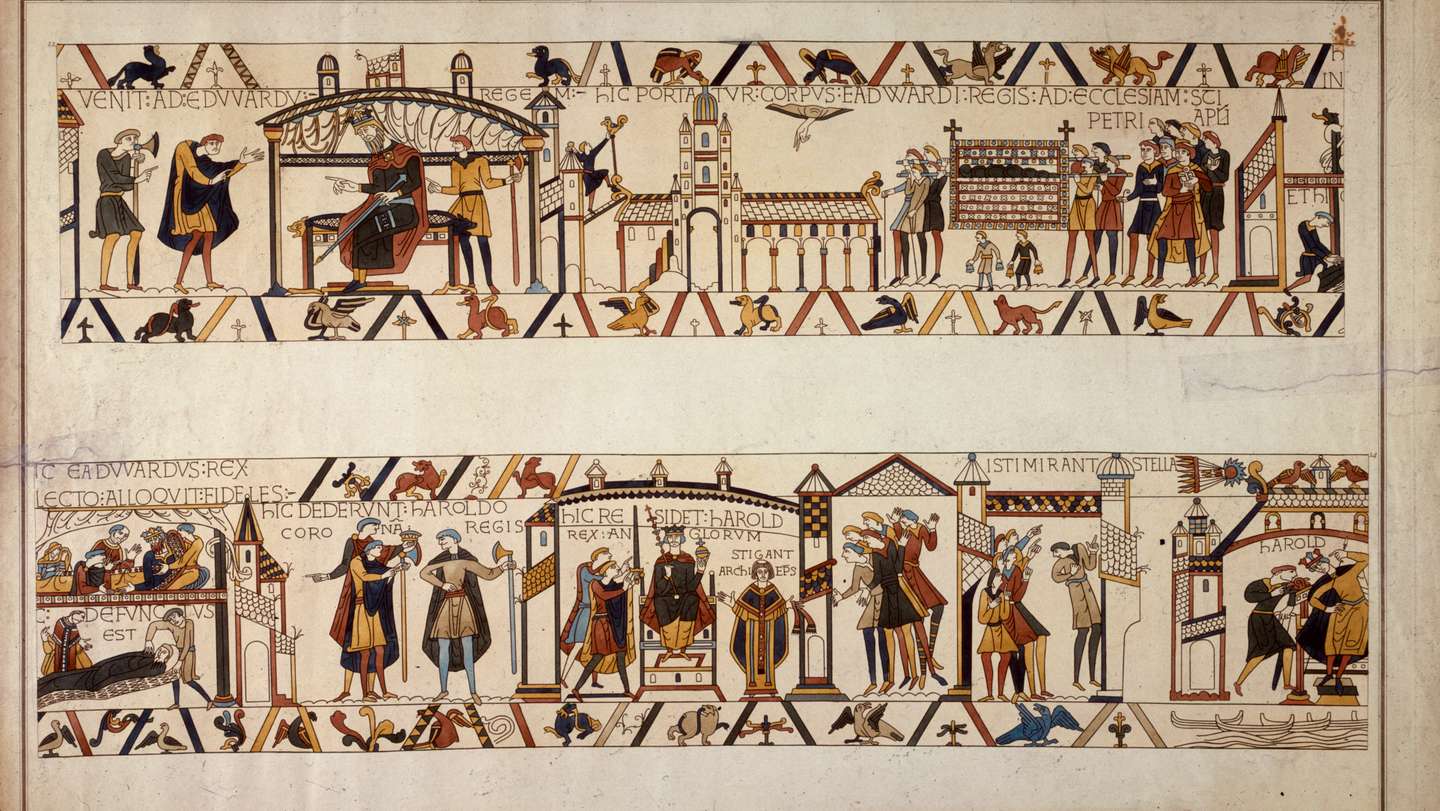 VENIT:AD:EDVVARDV:- REGEM:- hIC PORTATVR:CORPVS:EADWARDI:REGIS:AD:ECCLESIAM:SCI
PETRI APLI
h
IN
ETHI
IC EADVVARDVS:REX
LECTO:ALLOQVIT:FIDELES:-
C: DEFVNCTVS
EST
hIC DEDERVNT:hAROLDO
CORO NA REGIS
hIC RE SIDET:hAROLD
REX:AN GLORVM
STIGANT
ARChI EPS
ISTI MIRANT STELLA
hAROLD